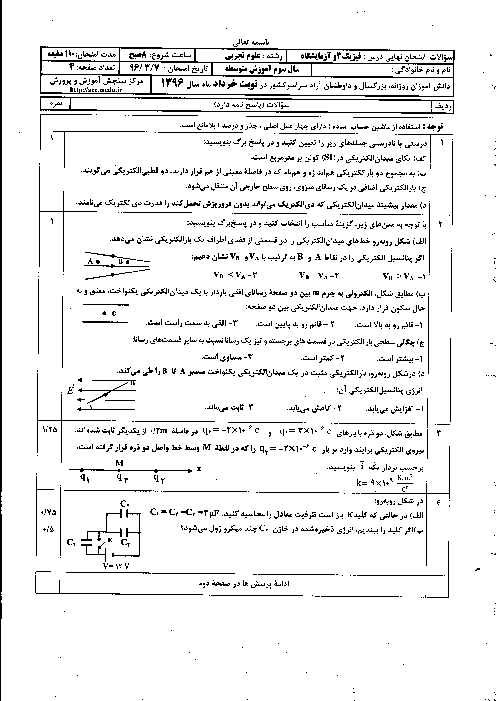 باسمه تعالی
سؤالات امتحان نهایی درس : فیزیک ۳ و آزمایشگاه
رشته : علوم تجربی
ساعت شروع: ۸ صبح
مدت امتحان: ۱۱۰ دقیقه
نام و نام خانوادگی:
سال سوم آموزش متوسطه
تاریخ امتحان : ۹۶/۳/۷
تعداد صفحه: ۴
دانش آموزان روزانه، بزرگسال و داوطلبان آزاد سراسر کشور در نوبت خرداد ماه سال ۱۳۹۶
مرکز سنجش آموزش و پرورش
http://aee.medu.ir
ردیف
سؤالات (پاسخ نامه دارد)
نمره
توجه : استفاده از ماشین حساب ساده ( دارای چهار عمل اصلی ، جذر و درصد ) بلامانع است.
۱
درستی یا نادرستی جمله‌های زیر را تعیین کنید و در پاسخ برگ بنویسید:
۱
الف: یکای میدان‌الکتریکی در (SI) کولن بر مترمربع است.
ب: به مجموع دو بار الکتریکی هم‌اندازه و هم‌نام که در فاصلهٔ معینی از هم قرار دارند، دو قطبی الکتریکی می‌گویند.
ج: بار الکتریکی اضافی در یک رسانای منزوی، روی سطح خارجی آن منتقل می‌شود.
د) مقدار بیشینهٔ میدان‌الکتریکی که دی‌الکتریک می‌تواند بدون فروریزش تحمل کند را قدرت دی الکتریک می‌نامند.
۲
با توجه به متن‌های زیر، گزینهٔ مناسب را انتخاب کنید و در پاسخ‌برگ بنویسید:
۱
الف) شکل روبه‌رو خط‌های میدان‌الکتریکی را در قسمتی از فضای اطراف یک بارالکتریکی نشان می‌دهد.
اگر پتانسیل الکتریکی را در نقاط A و B به ترتیب با VA و VB نشان دهیم:
A B
۱- VB > VA ۲- VB = VA ۳- VB < VA
ب) مطابق شکل، الکترونی به جرم m بین دو صفحهٔ رسانای افقی باردار با یک میدان‌الکتریکی یکنواخت، معلق و به
حال سکون قرار دارد. جهت میدان‌الکتریکی بین دو صفحه:
e
۱- قائم رو به بالا است. ۲- قائم رو به پایین است. ۳- افقی به سمت راست است.
ج) چگالی سطحی بار الکتریکی در قسمت های برجسته و تیز یک رسانا نسبت به سایر قسمت‌های رسانا:
۱- بیشتر است. ۲- کمتر است. ۳- مساوی است.
د) در شکل روبه‌رو، بارالکتریکی مثبت در یک میدان‌الکتریکی یکنواخت مسیر A تا B را طی می‌کند.
انرژی پتانسیل الکتریکی آن:
E B A
۱- افزایش می‌یابد. ۲- کاهش می‌یابد. ۳- ثابت می‌ماند.
۳
۱/۲۵
نیروی الکتریکی برایند وارد بر بار را که در نقطهٔ M وسط خط واصل دو ذره قرار گرفته است،
برحسب بردار یکهٔ i بنویسید.
M x
q₁ q₃ q₂
۴
در شکل روبه‌رو:
الف) در حالتی که کلید K باز است ظرفیت معادل را محاسبه کنید. C₁ = C₂ = C₃ = ۳ μF
۰/۷۵
۰/۵
C₃
C₁ K C₂
V= ۱۲ V
ادامهٔ پرسش ها در صفحهٔ دوم